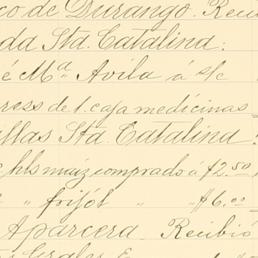 co de Durango. Recib
da Sta. Catalina:
é Ma. Avila á s/c
press de 1. caja medicinas
llas Sta. Catalina:
hls maiz comprados á $2.50
" " frijol " " $6.00
Aparcera. Recibió